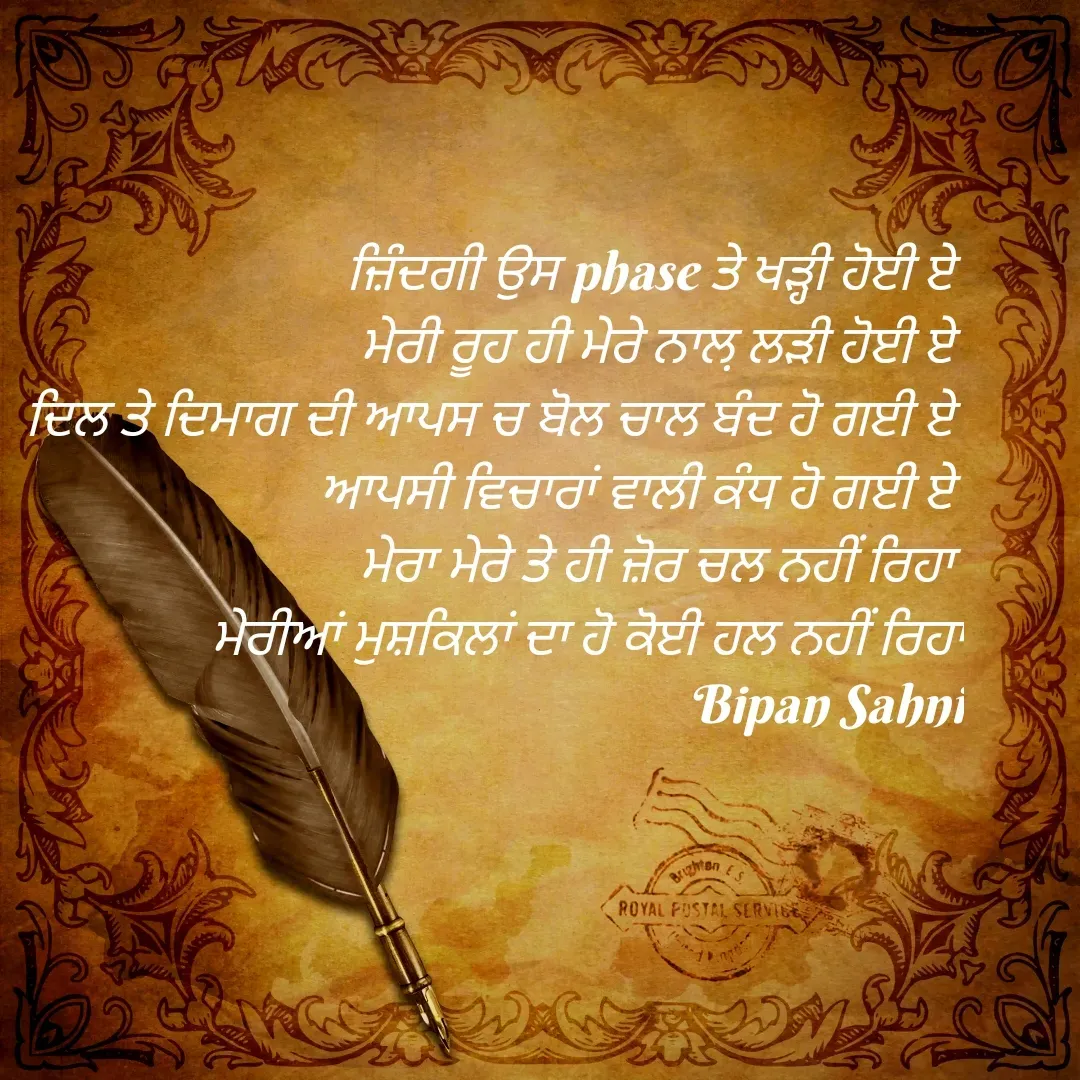 ਜ਼ਿੰਦਗੀ ਉਸ phase ਤੇ ਖੜ੍ਹੀ ਹੋਈ ਏ
ਮੇਰੀ ਰੂਹ ਹੀ ਮੇਰੇ ਨਾਲ਼ ਲੜੀ ਹੋਈ ਏ
ਦਿਲ ਤੇ ਦਿਮਾਗ ਦੀ ਆਪਸ ਚ ਬੋਲ ਚਾਲ ਬੰਦ ਹੋ ਗਈ ਏ
ਆਪਸੀ ਵਿਚਾਰਾਂ ਵਾਲੀ ਕੰਧ ਹੋ ਗਈ ਏ
ਮੇਰਾ ਮੇਰੇ ਤੇ ਹੀ ਜ਼ੋਰ ਚਲ ਨਹੀਂ ਰਿਹਾ
ਮੇਰੀਆਂ ਮੁਸ਼ਕਿਲਾਂ ਦਾ ਹੋ ਕੋਈ ਹਲ ਨਹੀਂ ਰਿਹਾ
Bipan Sahni
Brighton E.S.
ROYAL POSTAL SERVICE